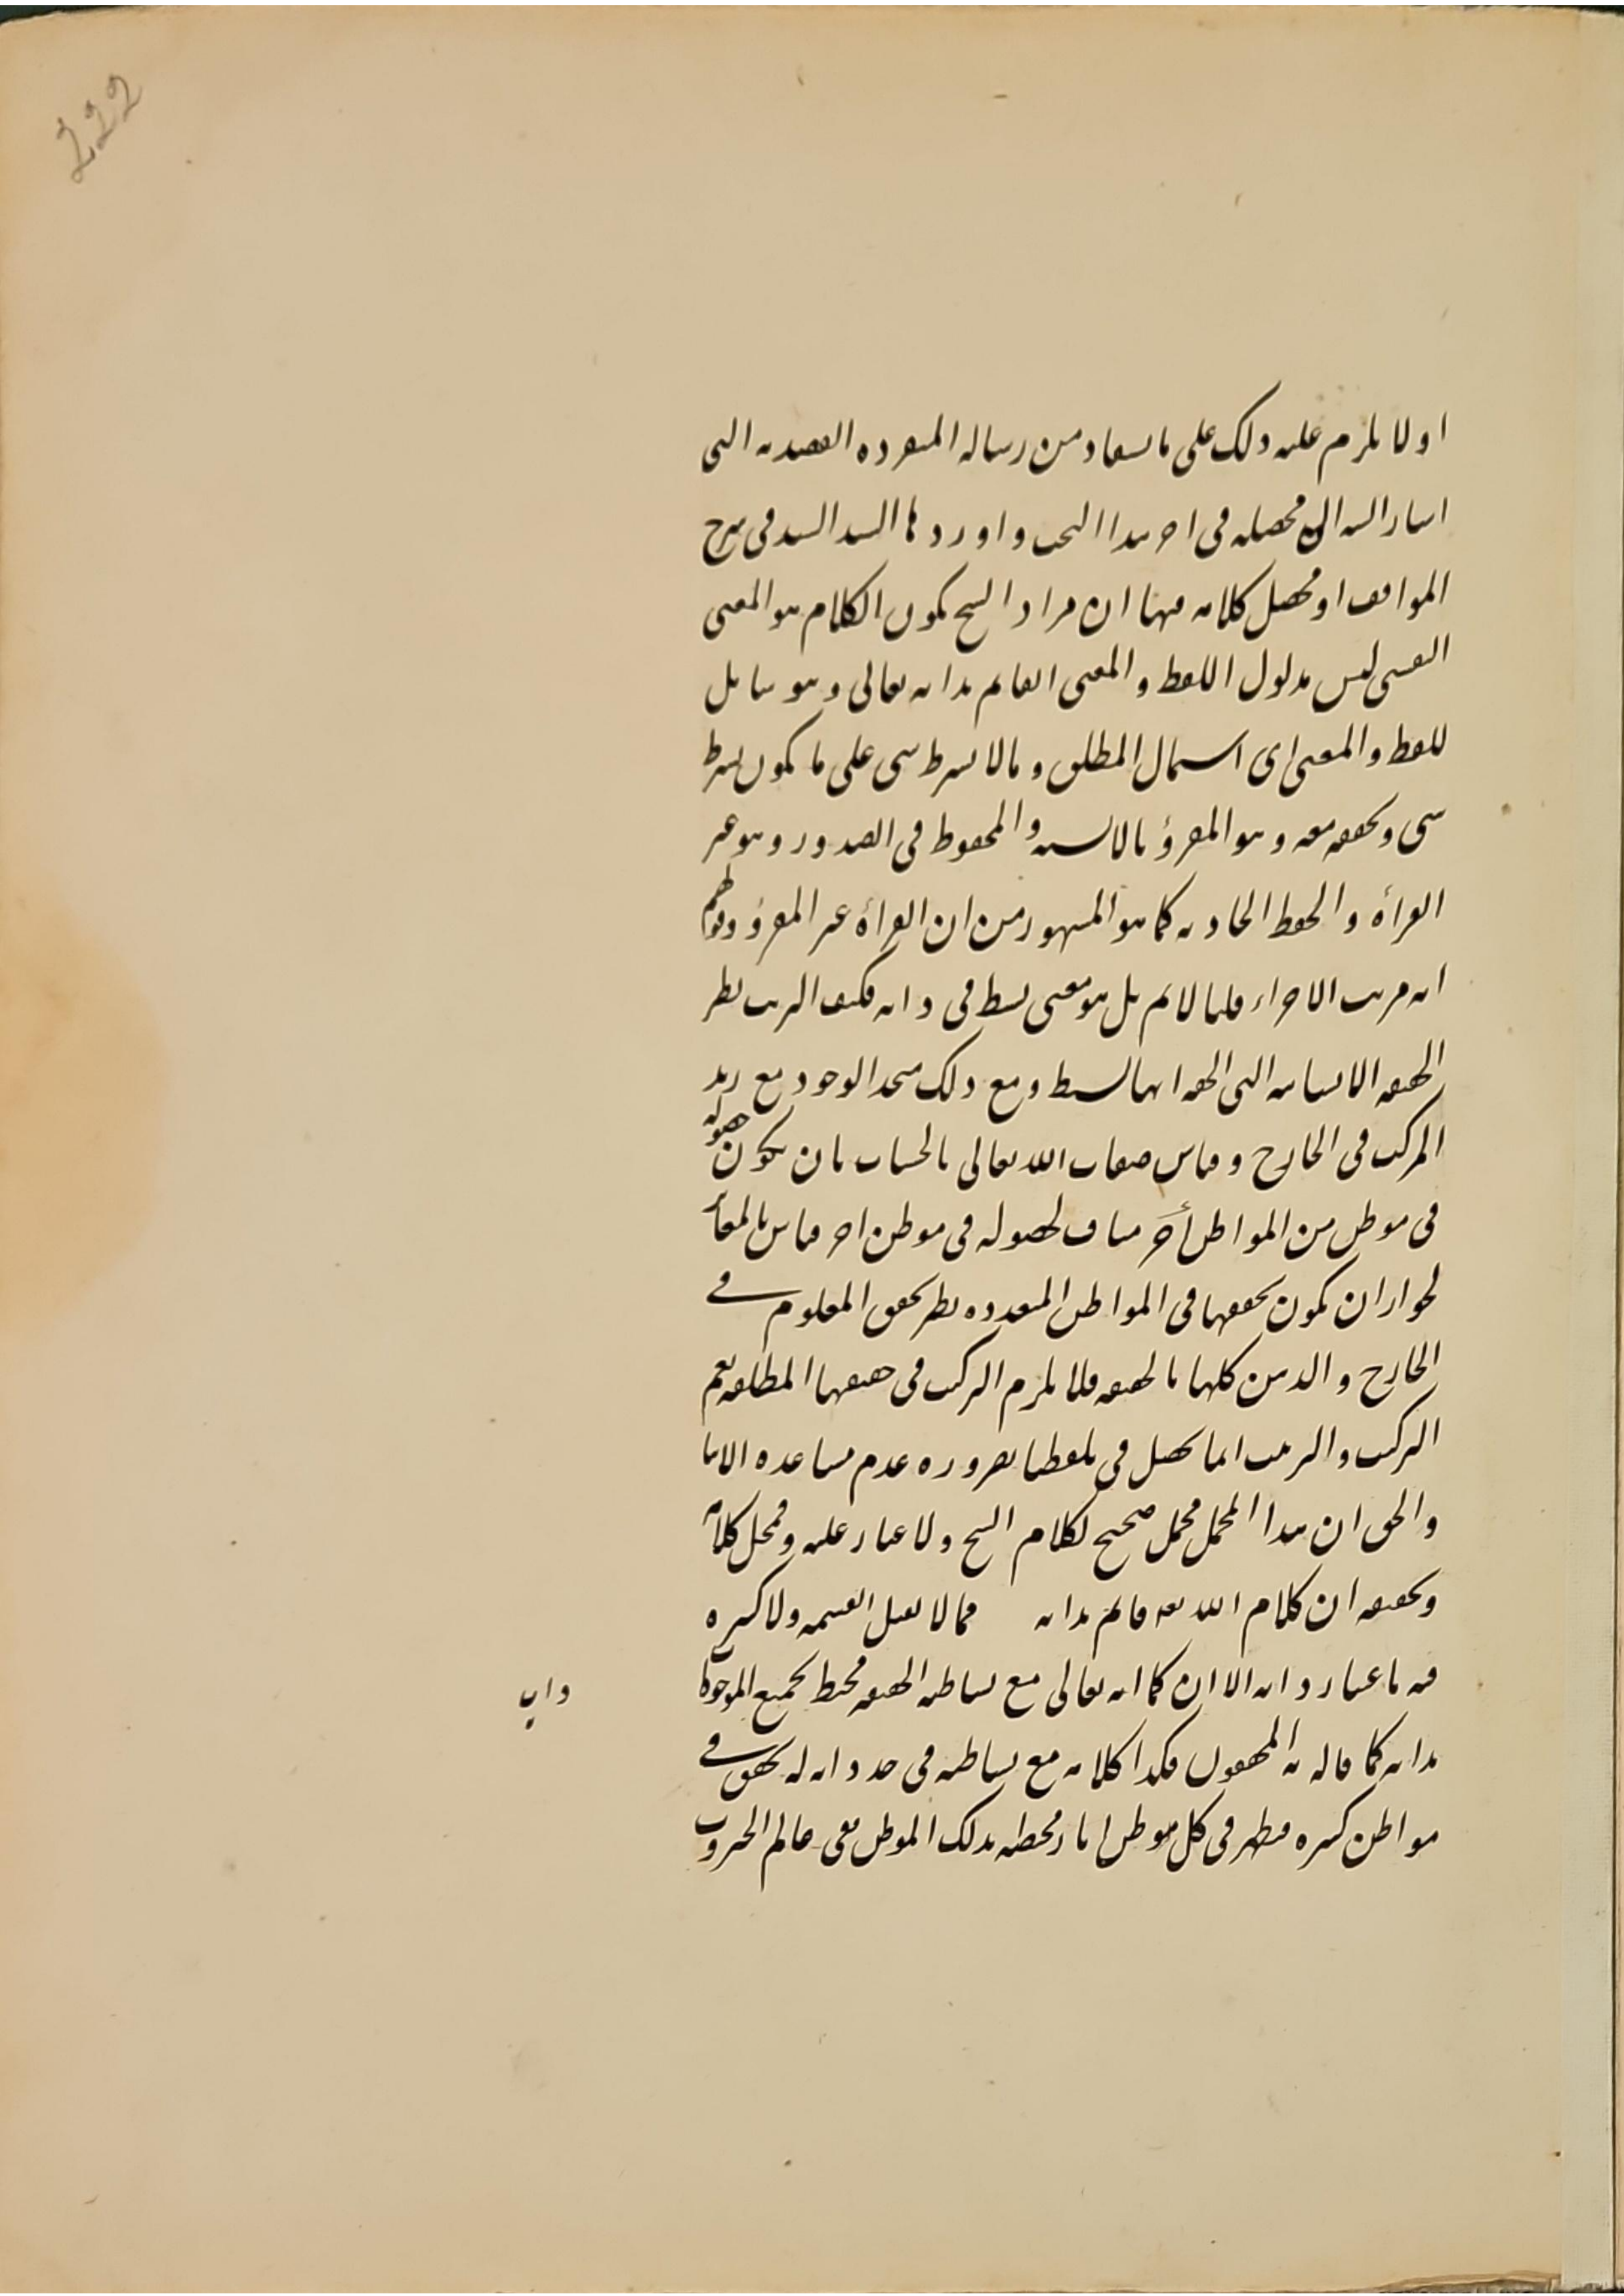 222
او لا يلزم عليه ذلك على ما يستفاد من رسالة المفردة العضدية التى
اشار السه الى محصله فى اخر هذا البحث واوردها السيد السند فى شرح
المواقف او محصل كلامه فيها ان مراد الشيخ بكون الكلام هو المعنى
النفسى ليس مدلول اللفظ والمعنى القائم بذاته تعالى وهو شامل
للفظ والمعنى اى اشتمال المطلق وما لا بشرط شىء على ما يكون بشرط
شىء وتحققه معه وهو المقرؤ بالالسنه والمحفوظ فى الصدور وهو غير
القراءة والحفظ الحادثه كما هو المشهور من ان القراءة غير المقرؤ وقولهم
انه مرتب الاجزاء قلنا لا نم بل هو معنى بسيط فى ذاته فكيف الترتب نظر
الحقيقه الانسانيه التى الحق انها لبسيط ومع ذلك متحد الوجود مع زيد
المركب فى الخارج وقياس صفات الله تعالى بالحساب بان يكون حصوله
فى موطن من المواطن أخر مناف لحصوله فى موطن اخر قياس بالمقا
لجواز ان يكون تحققها فى المواطن المتعدده نظير تحقق المعلوم فى
الخارج والذهن كلها بالحقيقه فلا يلزم التركب فى حقيقتها المطلقه نعم
التركب والترتب انما يحصل فى تلفظنا بضرورة عدم مساعده الالا
والحق ان هذا المحمل محمل صحيح لكلام الشيخ ولا غبار عليه ومحل كلامه
وتحقيقه ان كلام الله تعه قائم بذاته مما لا يقبل القسمه ولا كثره
فيه باعتبار ذاته الا ان كما انه تعالى مع بساطه الحقيقه محيط بجميع الموجودات
بذاته كما قال به المحققون فكذا كلامه مع بساطته فى حد ذاته له تحقق فى
مواطن كثيره فيظهر فى كل موطن اثار مختصه بذلك الموطن ففى عالم الحروف